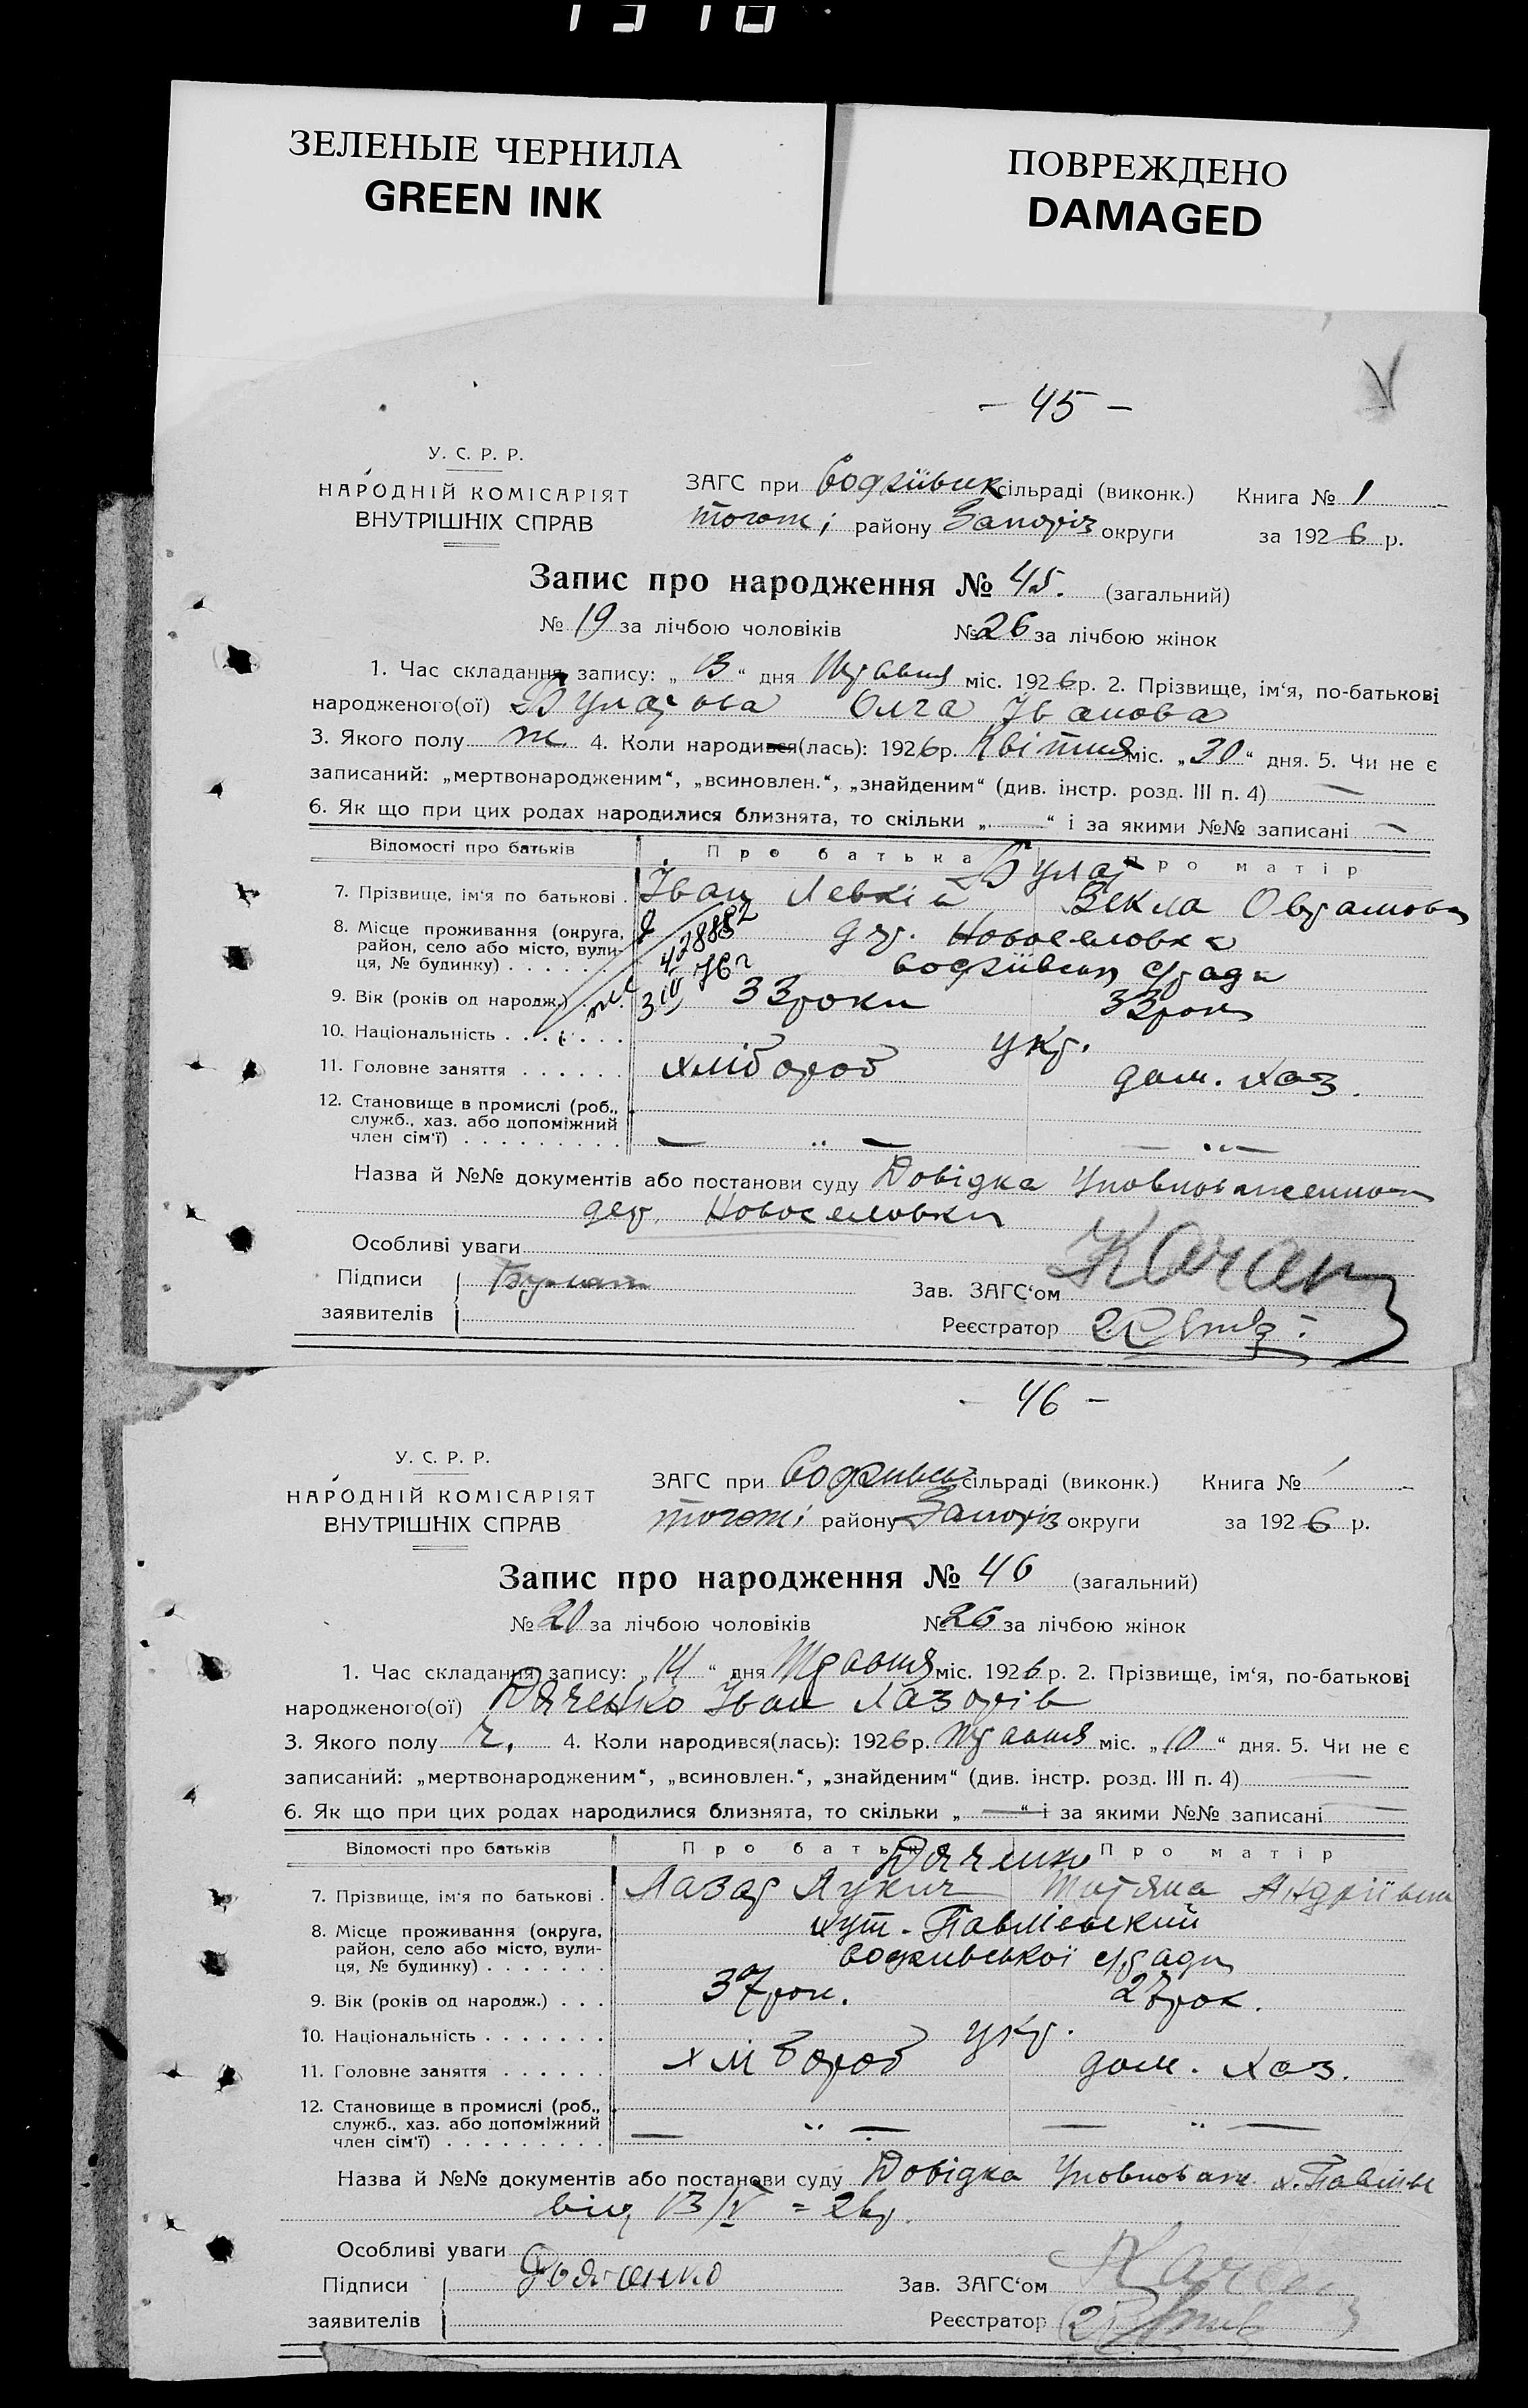 ЗЕЛЕНЫЕ ЧЕРНИЛА
GREEN INK
ПОВРЕЖДЕНО
DAMAGED
- 45 -
У. С. Р. Р.
НАРОДНІЙ КОМІСАРІЯТ
ВНУТРІШНІХ СПРАВ
ЗАГС при сільраді (виконк.) Книга № 1
району Запоріз округи за 1926 р.
Запис про народження № 45. (загальний)
№ 19 за лічбою чоловіків № 26 за лічбою жінок
1. Час складання запису: „13“ дня Травня міс. 1926 р. 2. Прізвище, ім‘я, по-батькові
народженого(ої) Олга Іванова
3. Якого полу ж. 4. Коли народився(лась): 1926 р. Квітня міс. „30“ дня. 5. Чи не є
записаний: „мертвонародженим“, „всиновлен.“, „знайденим“ (див. інстр. розд. III п. 4) —
6. Як що при цих родах народилися близнята, то скільки „—“ і за якими №№ записані —
Відомості про батьків Про батька Про матір
7. Прізвище, ім‘я по батькові . Іван Векла
8. Місце проживання (округа, район, село або місто, вулиця, № будинку) . . . . . . Новоселовка
9. Вік (років од народж.) . . . 33 роки 33 роки
10. Національність . . . . . . . укр.
11. Головне заняття . . . . . . хлібороб дом. хаз.
12. Становище в промислі (роб., служб., хаз. або допоміжний член сім‘ї) . . . . . . . . . — „ — — „ —
Назва й №№ документів або постанови суду Довідка Уповноваженного
дер. Новоселовки
Особливі уваги
Підписи
заявителів
Зав. ЗАГС‘ом Качан
Реєстратор
- 46 -
У. С. Р. Р.
НАРОДНІЙ КОМІСАРІЯТ
ВНУТРІШНІХ СПРАВ
ЗАГС при сільраді (виконк.) Книга № 1
району Запоріз округи за 1926 р.
Запис про народження № 46 (загальний)
№ 20 за лічбою чоловіків № 26 за лічбою жінок
1. Час складання запису: „14“ дня Травня міс. 1926 р. 2. Прізвище, ім‘я, по-батькові
народженого(ої) Дяченко Іван Лазорів
3. Якого полу ч. 4. Коли народився(лась): 1926 р. Травня міс. „10“ дня. 5. Чи не є
записаний: „мертвонародженим“, „всиновлен.“, „знайденим“ (див. інстр. розд. III п. 4) —
6. Як що при цих родах народилися близнята, то скільки „—“ і за якими №№ записані —
Відомості про батьків Про батька Про матір
Дяченко
7. Прізвище, ім‘я по батькові . Лазар Лукич Татяна Андріївна
8. Місце проживання (округа, район, село або місто, вулиця, № будинку) . . . . . . . хут. Павлівський
9. Вік (років од народж.) . . . 37 рок. 27 рок.
10. Національність . . . . . . . укр.
11. Головне заняття . . . . . . хлібороб дом. хаз.
12. Становище в промислі (роб., служб., хаз. або допоміжний член сім‘ї) . . . . . . . . . — „ — — „ —
Назва й №№ документів або постанови суду Довідка Уповноваж.
від 13/V = 26 р.
Особливі уваги
Підписи Дьяченко
заявителів
Зав. ЗАГС‘ом Качан
Реєстратор